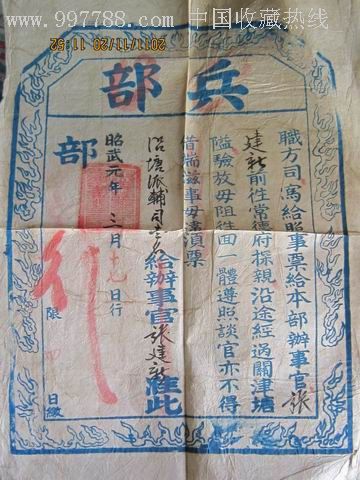 www.997788.com 中国收藏热线
兵部
職方司為給照事票給本部辦事官張
建新前往常德府探親沿途經過關津塘
隘驗放毋阻往面一體遵照談官亦不得
借端滋事毋違須票
給辦事官張建新准此
昭武元年三月十九日行
部
行
限 日繳